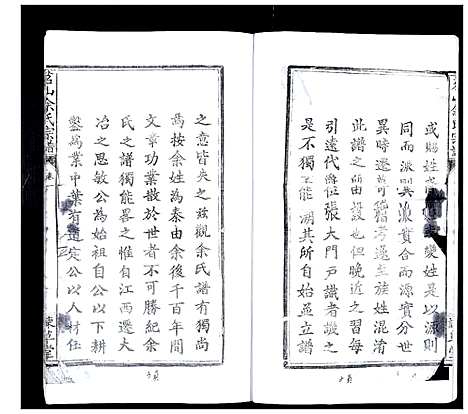 或賜姓
變姓是以源則
同而派則異派實合而源實分世
異時遷苟可稽考遂至族姓混淆
此譜之所由設也但晚近之習每
引遠代辭位張大門戶識者譏之
是不獨不能溯其所自始並立譜
之意皆失之茲觀余氏譜有獨尚
焉按余姓為秦由余後千百年間
文章功業散於世者不可勝紀余
氏之譜獨能畧之惟自江西遷大
冶之思敏公為始祖自公以下耕
鑿為業中葉有
定公以人材任
余氏宗譜